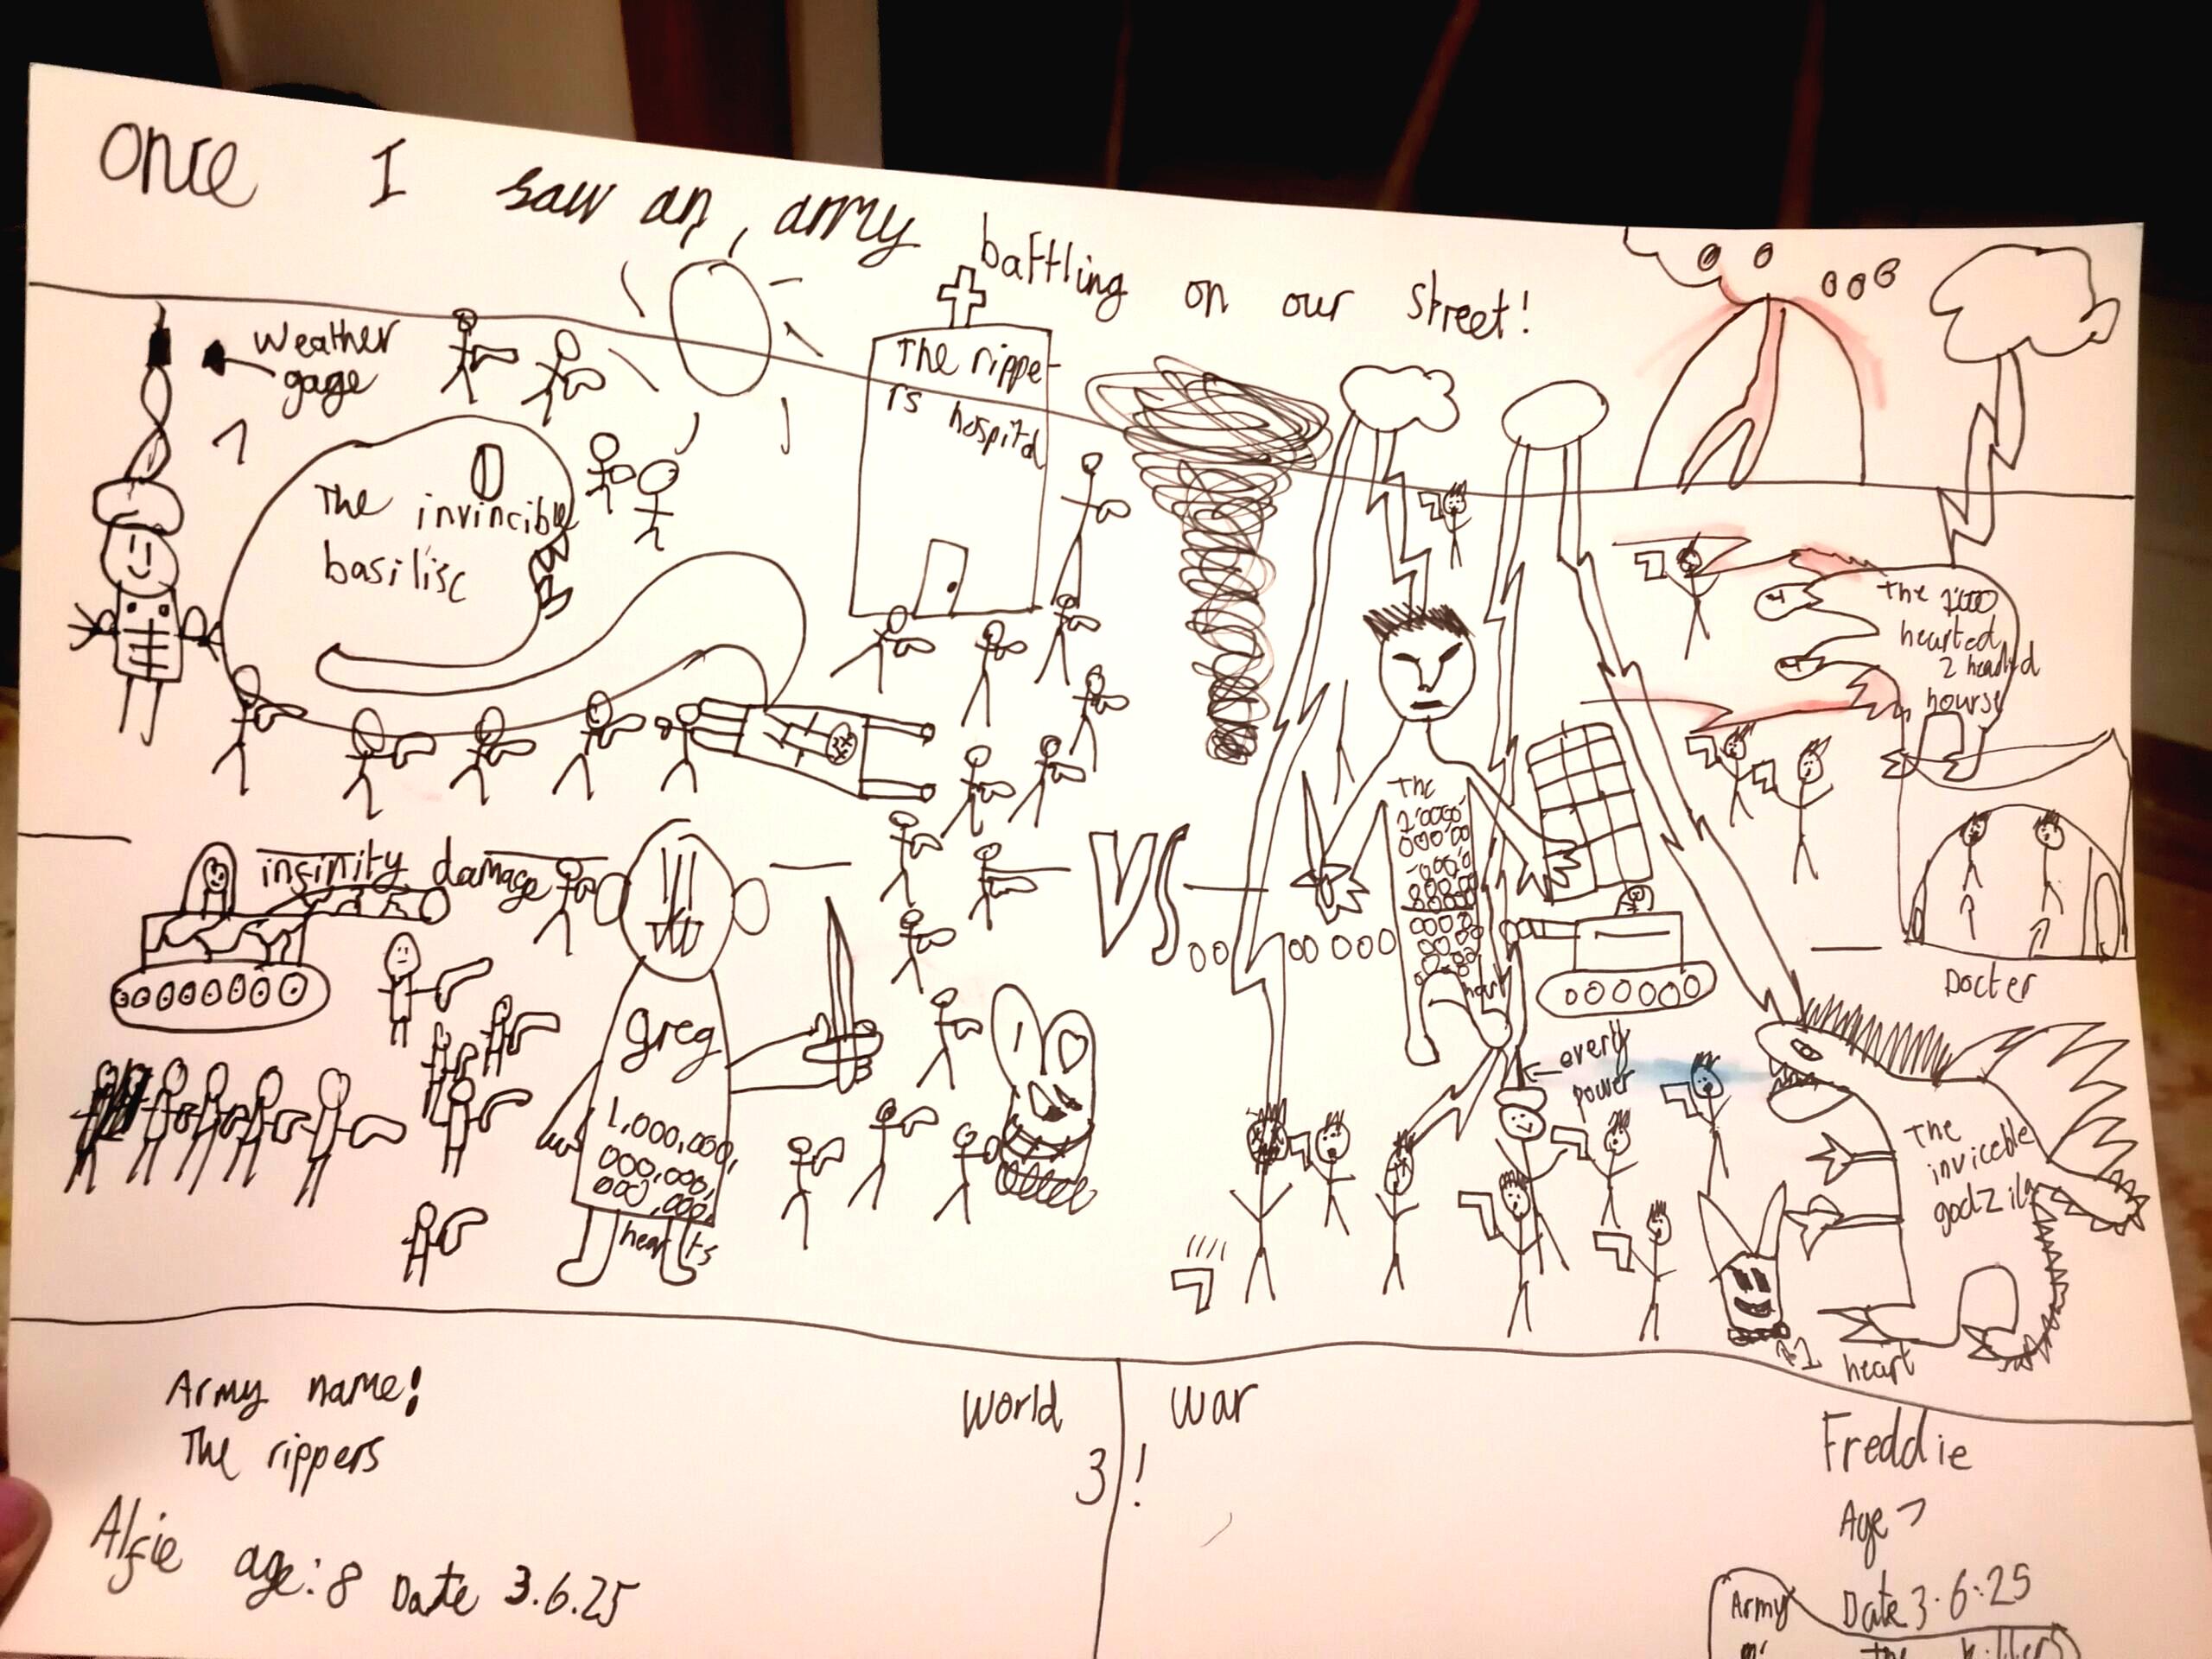 once I saw an army battling on our street!
Weather
gage
1
The invincible
basilisc
The rippe-
rs hospital
The
hearted
2 headed
hourse
insinity damage
VS
The
Docter
greg
1,000,000,
000,000,
000,000,
hearts
every
power
heart
The
inviceble
godzila
1
heart
Army name!
The rippers
World War
3!
Alfie age: 8 Date 3.6.25
Freddie
Age 7
Date 3.6.25
Army
The killers